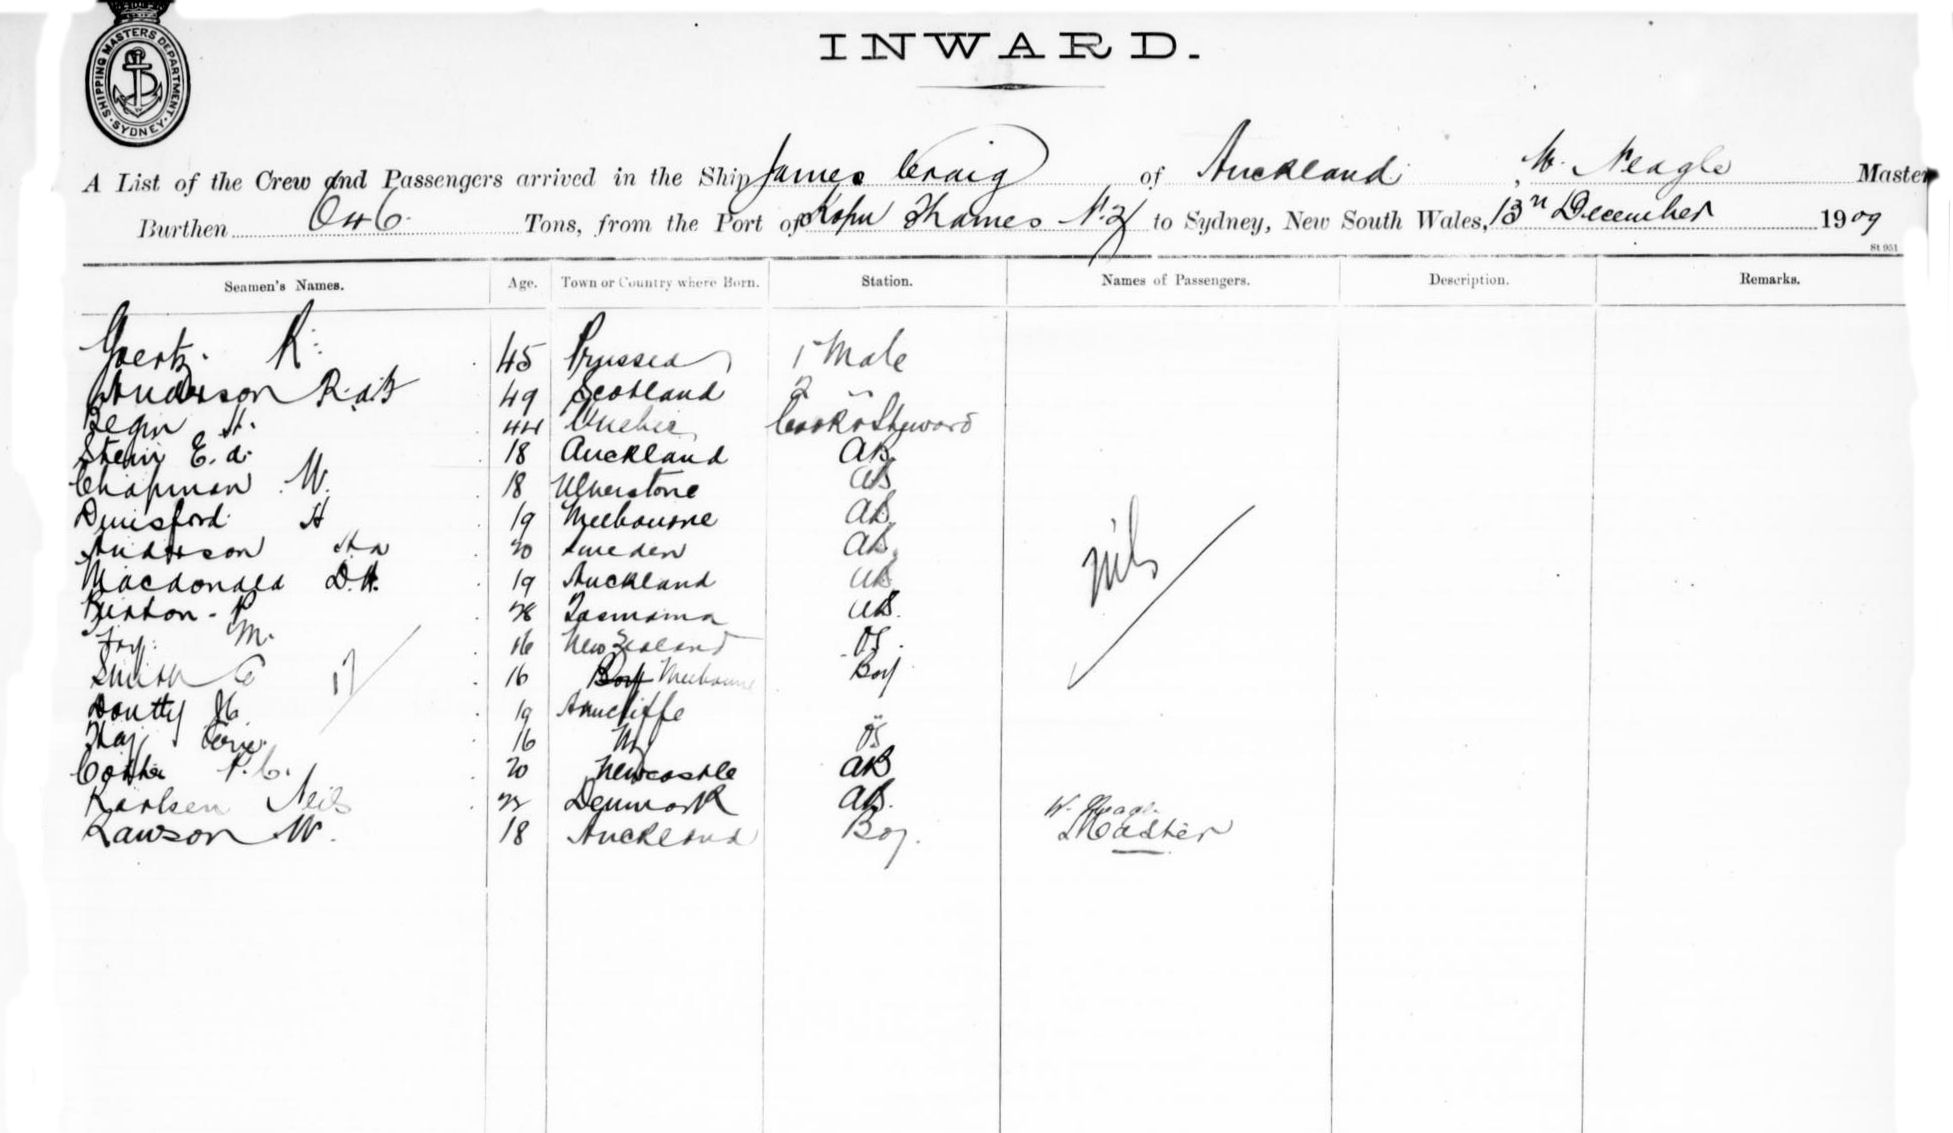 SHIPPING MASTERS DEPARTMENT. SYDNEY.
INWARD.
A List of the Crew and Passengers arrived in the Ship James Craig of Auckland, W. Neagle Master
Burthen 646 Tons, from the Port of Thames N.Z to Sydney, New South Wales, 13th December 1909
St 951
Seamen's Names. Age. Town or Country where Born. Station. Names of Passengers. Description. Remarks.
Goertz. R: 45 Prussia 1 Mate
Anderson 49 Scotland 2 "
44 Quebec Cook & Steward
E. A. 18 Auckland AB
Chapman W. 18 Ulverstone AB
H 19 Melbourne AB
Anderson 20 Sweden AB
Macdonald D. 19 Auckland AB
P Tasmania AB.
M. 16 New Zealand OS.
Smith 16 Boy Melbourne Boy
17
nil
19 Arncliffe
16 OS
P. C. 20 Newcastle AB
Karlsen Neils Denmark AB.
Lawson W. 18 Auckland Boy.
W. Neagle
Master